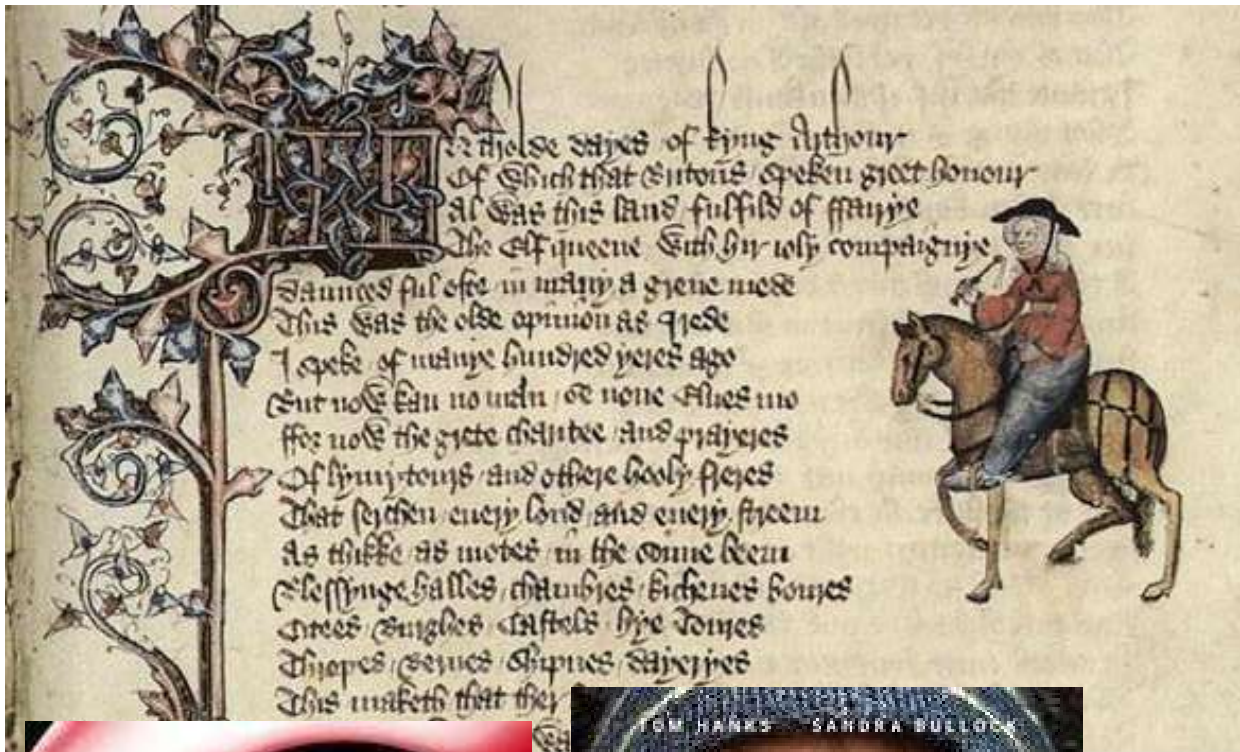 N tholde dayes of kyng Arthour
Of which that Britouns speken greet honour
Al was this land fulfild of ffairye
The Elf queene with hir ioly compaignye
Daunced ful ofte in many a grene mede
This was the olde opinion as I rede
I speke of manye hundred yeres ago
But now kan no man se none Elues mo
ffor now the grete charitee and prayeres
Of lymytours and othere hooly freres
That serchen euery lond and euery streem
As thikke as motes in the sonne beem
Blessynge halles chambres kichenes boures
Citees Burghes Castels hye Toures
Thropes Bernes Shipnes Dayeryes
This maketh that ther
TOM HANKS SANDRA BULLOCK